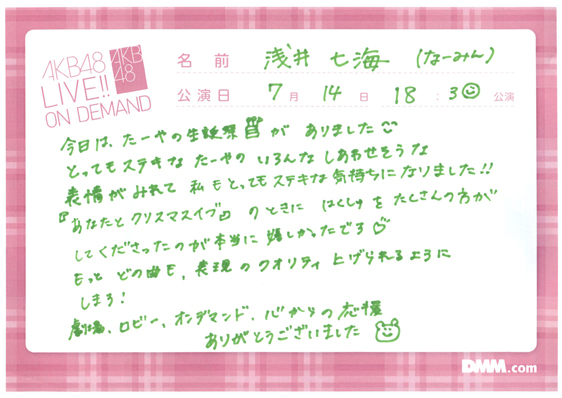 AKB48
LIVE!!
ON DEMAND
AKB
48
名前 浅井 七海 (なーみん)
公演日 7月 14日 18:30 公演
今日は、たーやの生誕祭が ありました
とってもステキな たーやの いろんな しあわせそうな
表情がみれて 私もとってもステキな気持ちになりました!!
『あなたとクリスマスイブ』のときに はくしゅを たくさんの方が
してくださったのが本当に 嬉しかったです
もっと どの曲も、表現のクオリティ上げられるように
します!
劇場、ロビー、オンデマンド、心からの応援
ありがとうございました
DMM.com